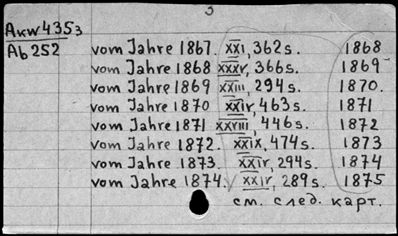 3
Akw 4353
Ab 252
vom Jahre 1867. XXI, 362 s. 1868
vom Jahre 1868 XXXV, 366 s. 1869
vom Jahre 1869 XXIII, 294 s. 1870.
vom Jahre 1870 XXIV, 463 s. 1871
vom Jahre 1871 XXVIII, 446 s. 1872
vom Jahre 1872. XXIX, 474 s. 1873
vom Jahre 1873. XXIV, 294 s. 1874
vom Jahre 1874. XXIV, 289 s. 1875
см. след. карт.